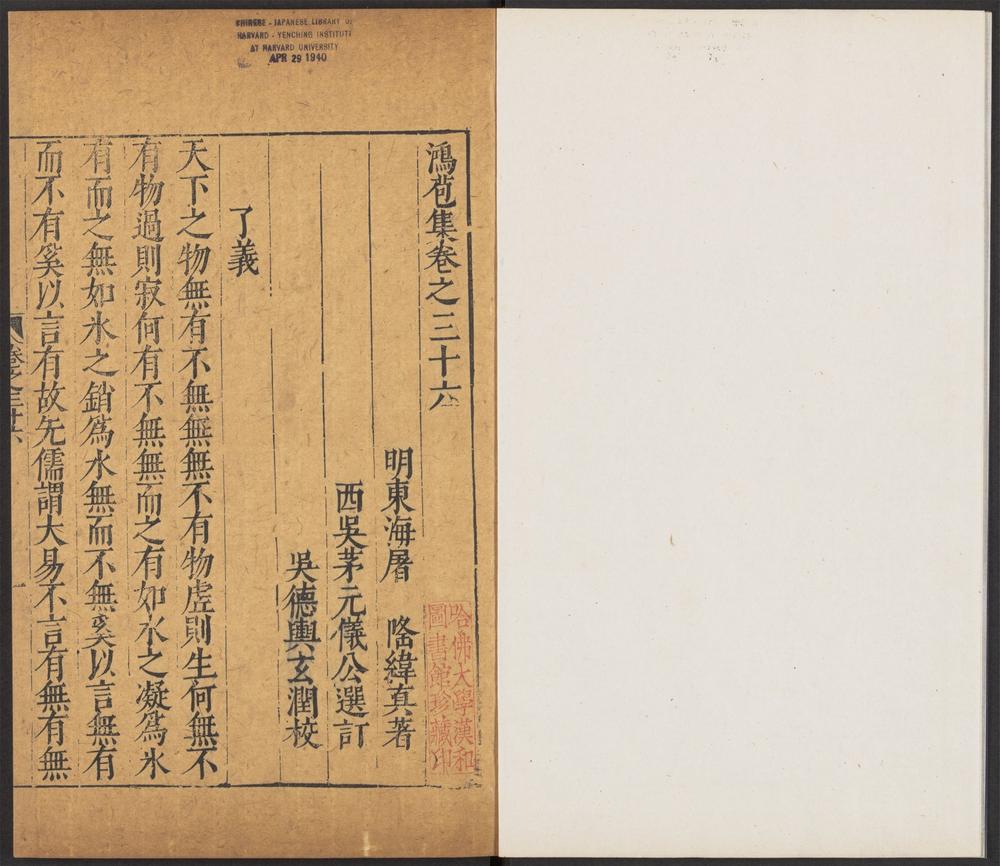 CHINESE - JAPANESE LIBRARY OF
HARVARD - YENCHING INSTITUTE
AT HARVARD UNIVERSITY
APR 29 1940
鴻苞集卷之三十六
明東海屠　隆緯真著
西吳茅元儀公選訂
吳德輿玄潤校
哈佛大學漢和
圖書館珍藏印
了義
天下之物無有不無無無不有物虛則生何無不
有物過則寂何有不無無而之有如水之凝為氷
有而之無如氷之銷為水無而不無奚以言無有
而不有奚以言有故先儒謂大易不言有無有無
卷之三十六
一